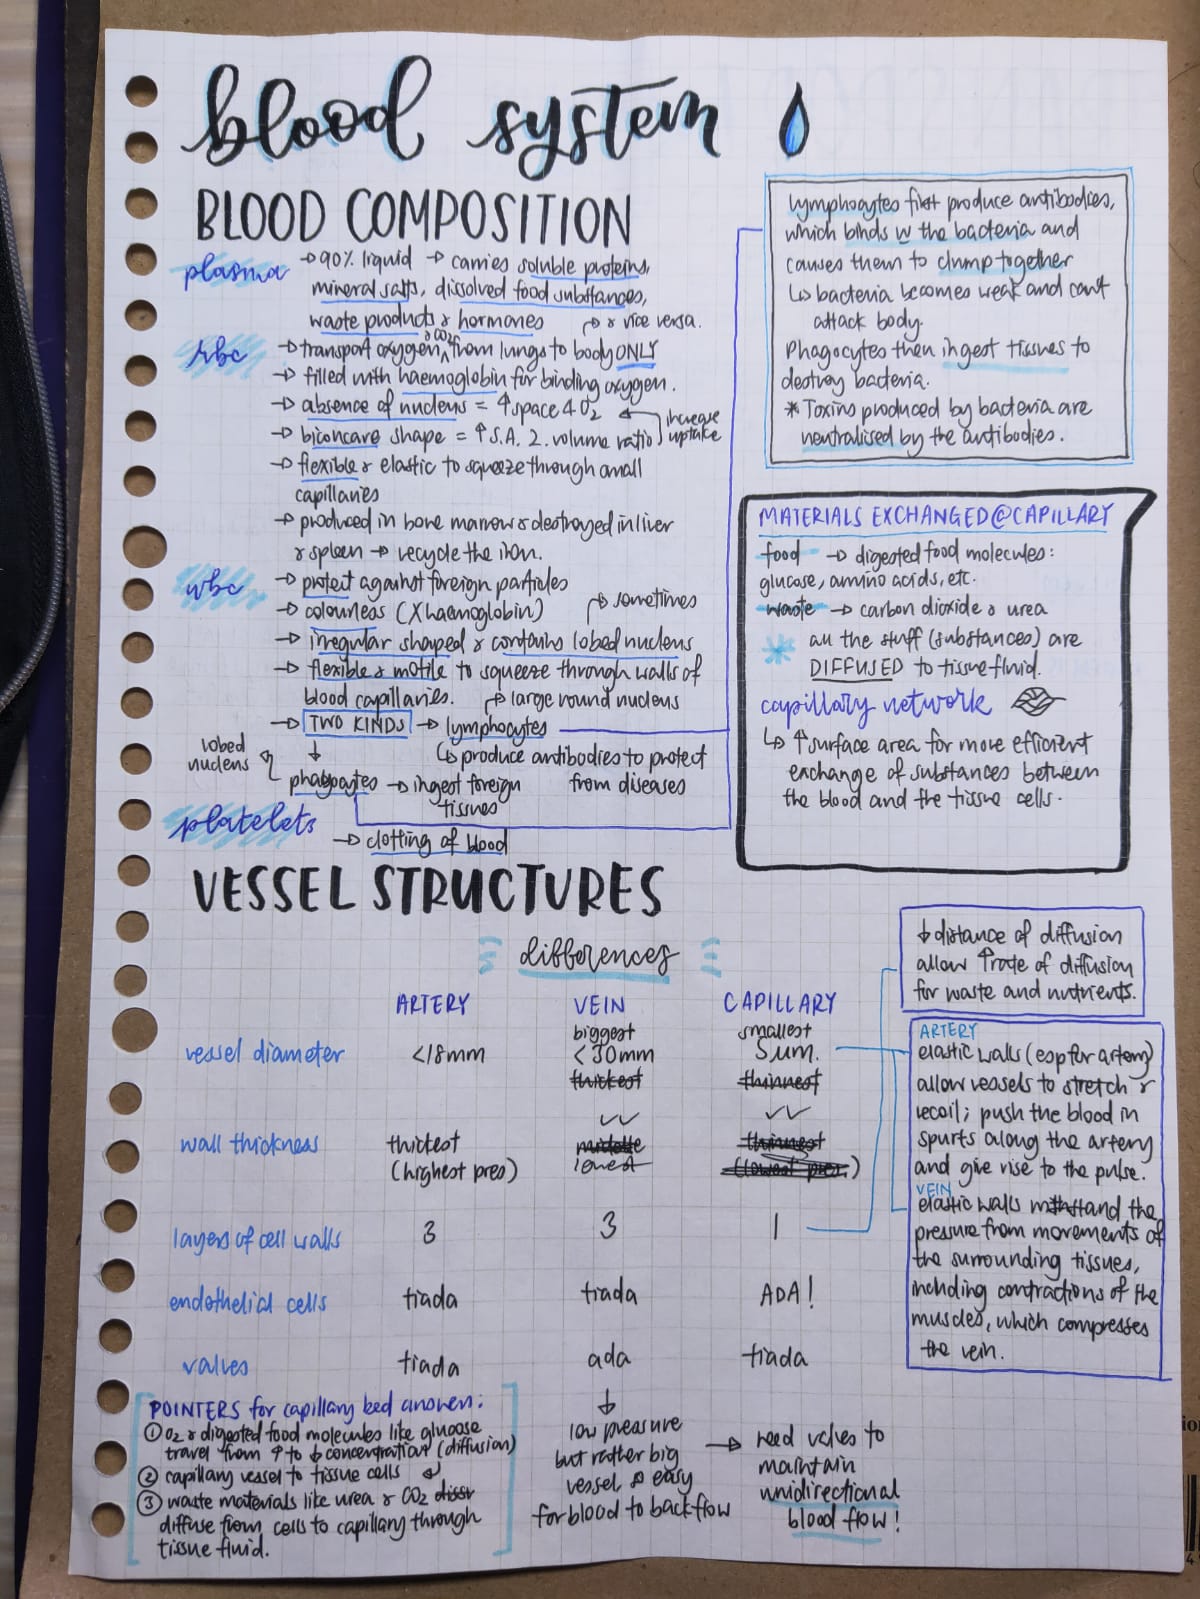 blood system
BLOOD COMPOSITION
plasma → 90% liquid → carries soluble proteins,
mineral salts, dissolved food substances,
waste products & hormones ↱ & vice versa.
rbc → transport oxygen ^& CO2 from lungs to body ONLY
→ filled with haemoglobin for binding oxygen.
→ absence of nucleus = ↑ space 4 O2
→ biconcave shape = ↑ S.A. 2. volume ratio
increase
uptake
→ flexible & elastic to squeeze through small
capillaries
→ produced in bone marrow & destroyed in liver
& spleen → recycle the iron.
wbc → protect against foreign particles
→ colourless (X haemoglobin) ↱ sometimes
→ irregular shaped & contains lobed nucleus
→ flexible & motile to squeeze through walls of
blood capillaries. ↱ large round nucleus
→ TWO KINDS → lymphocytes
↳ produce antibodies to protect
from diseases
lobed
nucleus
phagocytes → ingest foreign
tissues
platelets
→ clotting of blood
lymphocytes first produce antibodies,
which binds w the bacteria and
causes them to clump together
↳ bacteria becomes weak and cant
attack body.
Phagocytes then ingest tissues to
destroy bacteria.
* Toxins produced by bacteria are
neutralised by the antibodies.
MATERIALS EXCHANGED@CAPILLARY
food → digested food molecules:
glucose, amino acids, etc.
waste → carbon dioxide & urea
* all the stuff (substances) are
DIFFUSED to tissue fluid.
capillary network
↳ ↑ surface area for more efficient
exchange of substances between
the blood and the tissue cells.
VESSEL STRUCTURES
differences
ARTERY VEIN CAPILLARY
biggest smallest
vessel diameter <18mm <30mm 5um.
thickest thinnest
wall thickness thickest middle thinnest
(highest pres) lowest (lowest pres.)
layers of cell walls 3 3 1
endothelial cells tiada tiada ADA!
valves tiada ada tiada
↓
low pressure
but rather big
vessel so easy
for blood to backflow
→ need valves to
maintain
unidirectional
blood flow!
↓ distance of diffusion
allow ↑ rate of diffusion
for waste and nutrients.
ARTERY
elastic walls (esp for artery)
allow vessels to stretch &
recoil; push the blood in
spurts along the artery
and give rise to the pulse.
VEIN
elastic walls withstand the
pressure from movements of
the surrounding tissues,
including contractions of the
muscles, which compresses
the vein.
POINTERS for capillary bed answer:
① O2 & digested food molecules like glucose
travel from ↑ to ↓ concentration (diffusion)
② capillary vessel to tissue cells ↲
③ waste materials like urea & CO2
diffuse from cells to capillary through
tissue fluid.